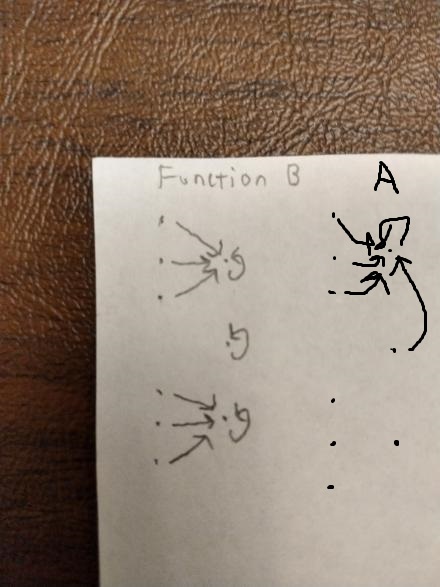 Function B
A